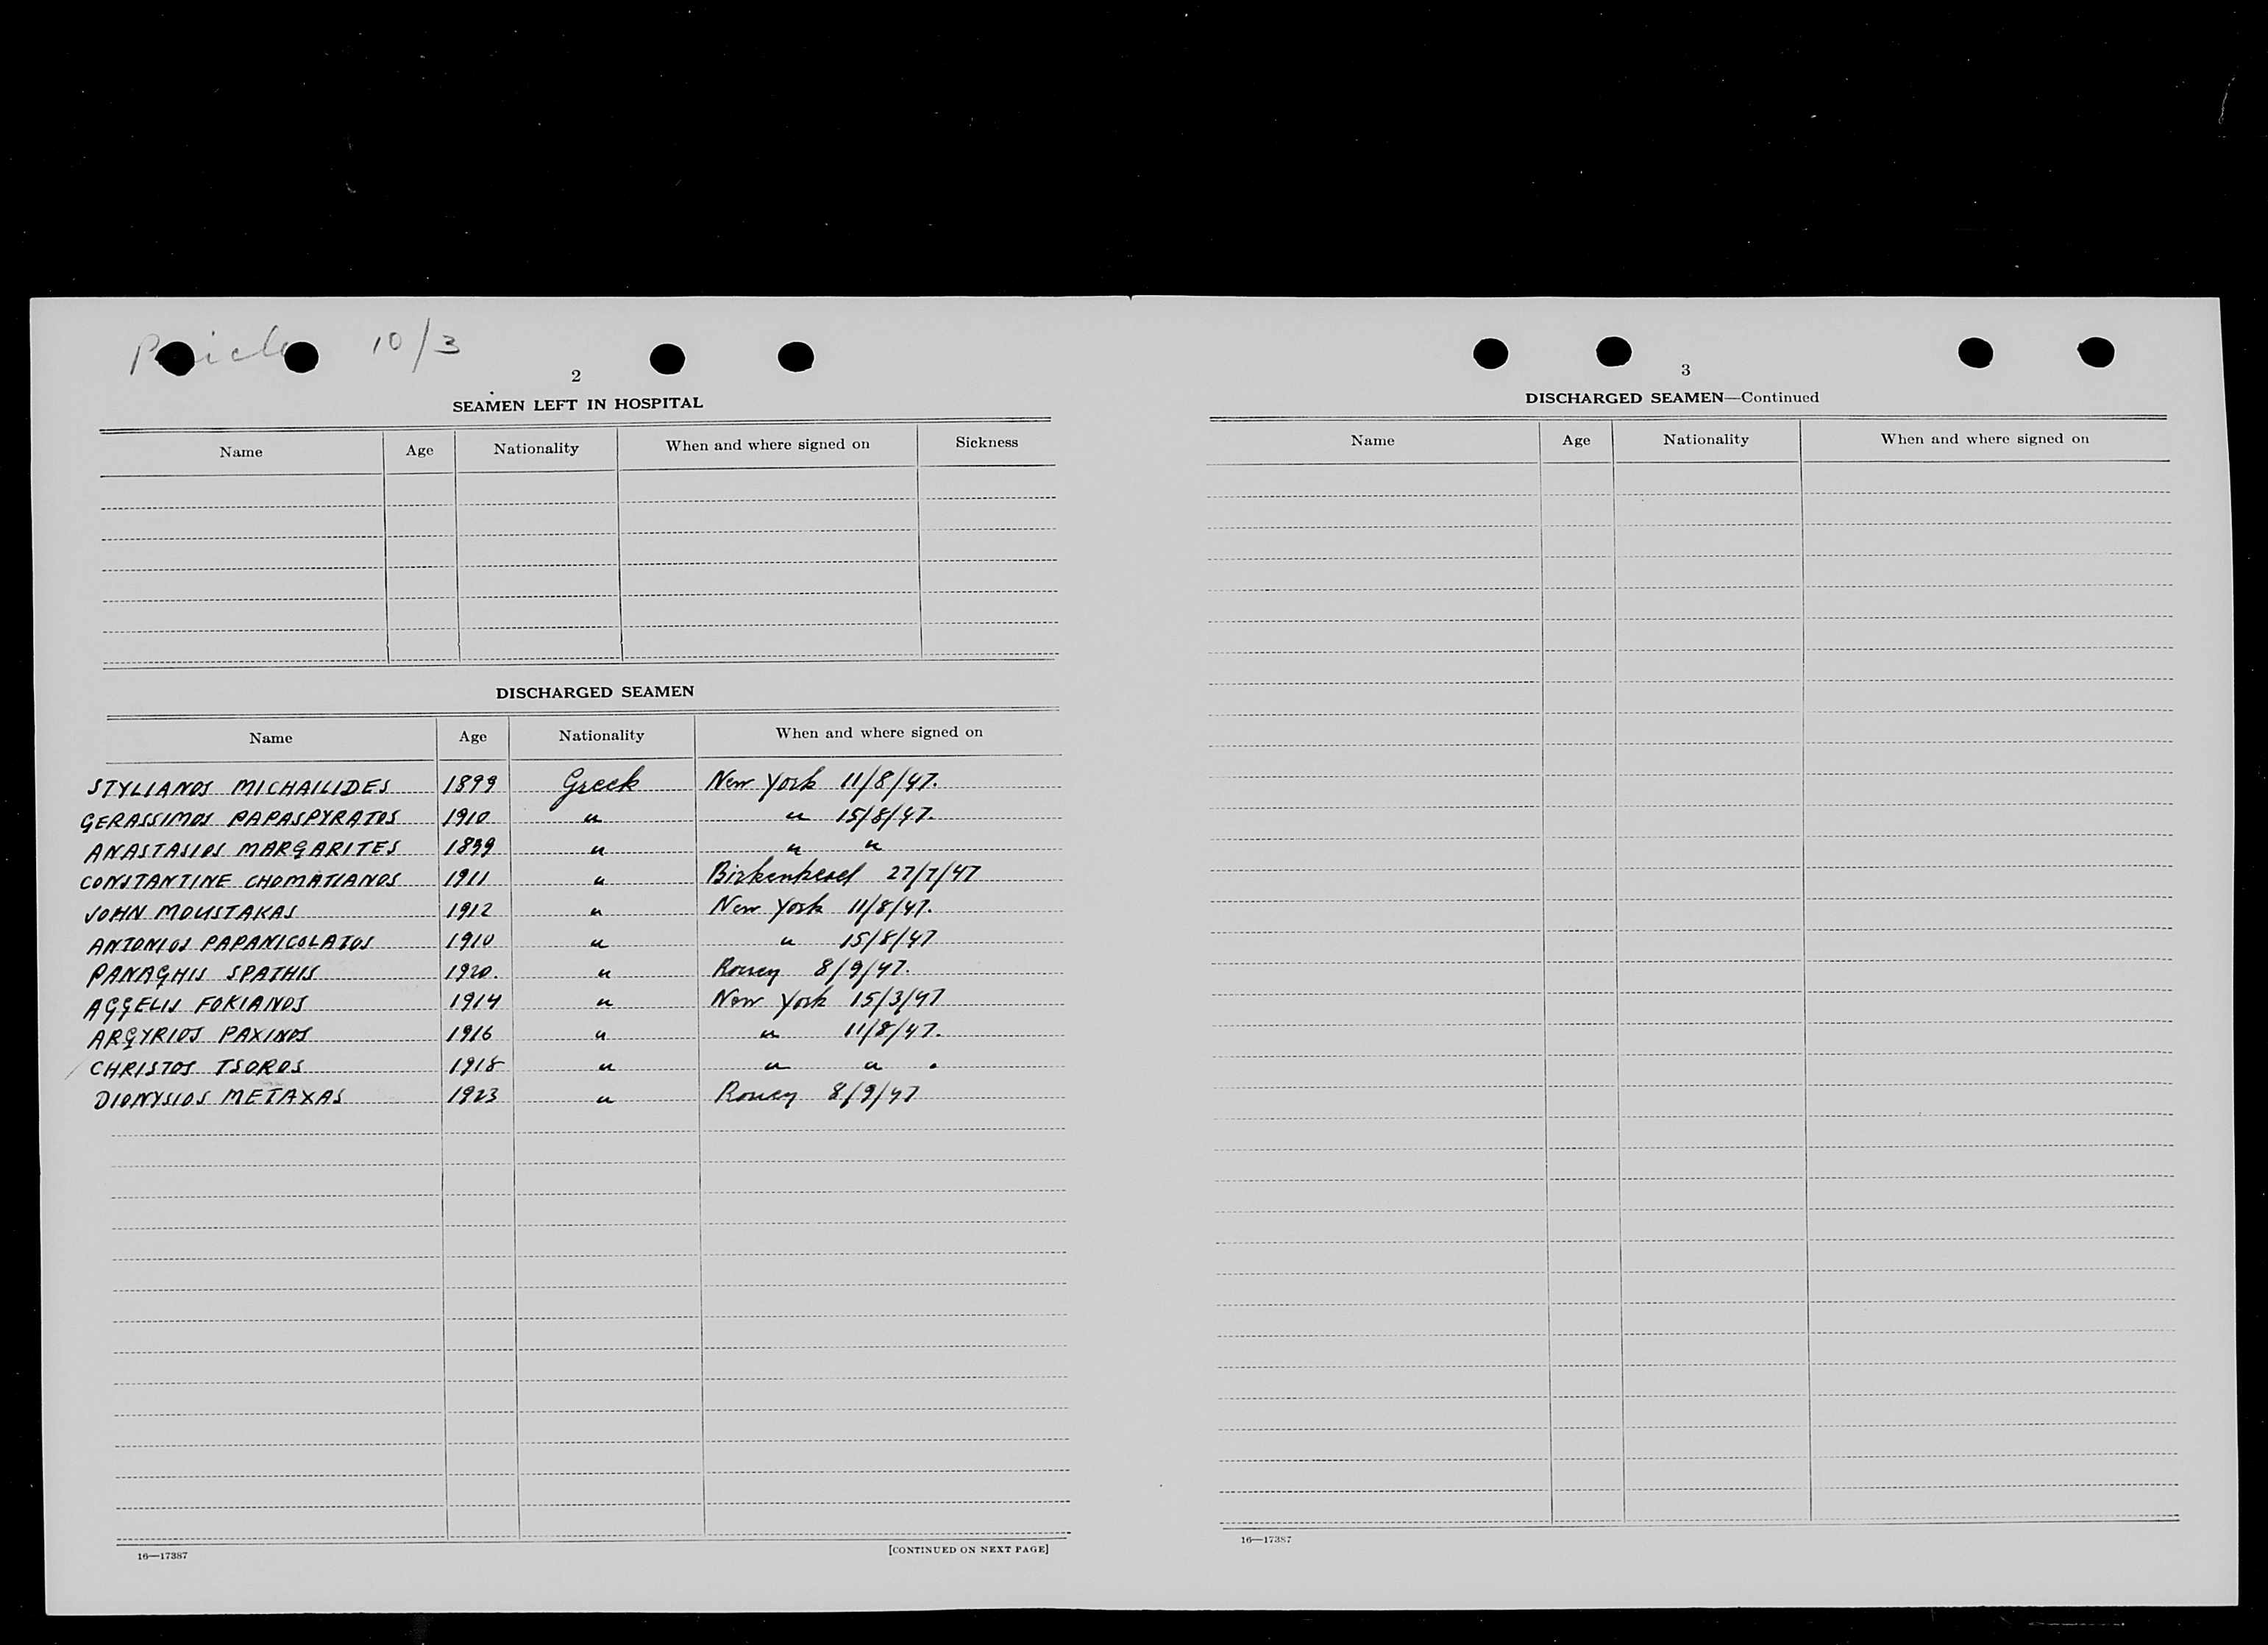 10/3
2
SEAMEN LEFT IN HOSPITAL
Name Age Nationality When and where signed on Sickness
DISCHARGED SEAMEN
Name Age Nationality When and where signed on
STYLIANOS MICHAILIDES 1899 Greek New York 11/8/47.
GERASSIMOS PAPASPYRATOS 1910 " " 15/8/47.
ANASTASIOS MARGARITES 1899 " " "
CONSTANTINE CHOMATIANOS 1911 " Birkenhead 27/7/47
JOHN MOUSTAKAS 1912 " New York 11/8/47.
ANTONIOS PAPANICOLATOS 1910 " " 15/8/47
PANAGHIS SPATHIS 1920. " 8/9/47.
AGGELIS FOKIANOS 1914 " New York 15/3/47
ARGYRIOS PAXINOS 1916 " " 11/8/47.
CHRISTOS TSOROS 1918 " " " .
DIONYSIOS METAXAS 1923 " 8/9/47
16—17387
[CONTINUED ON NEXT PAGE]
3
DISCHARGED SEAMEN—Continued
Name Age Nationality When and where signed on
16—17387